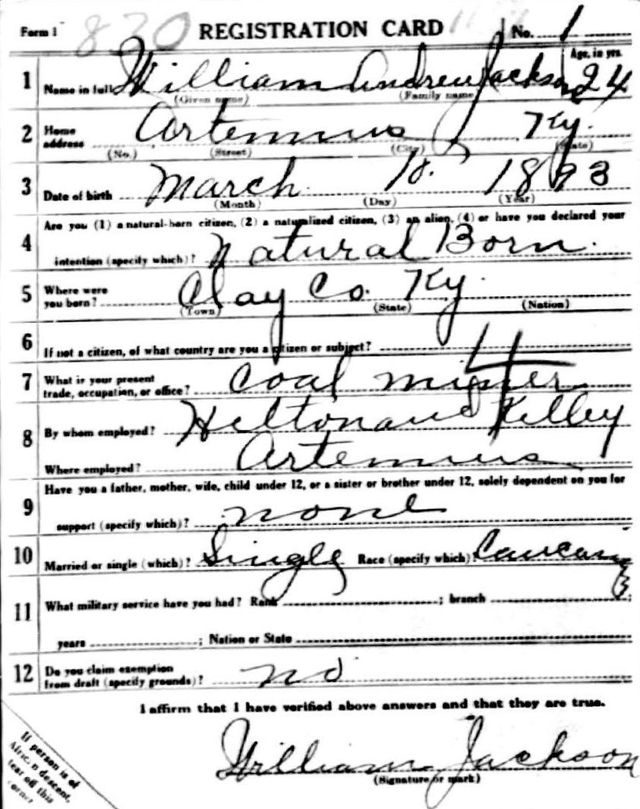 Form 1 830 REGISTRATION CARD No. 1
1 Name in full William Andrew Jackson Age, in yrs. 24
(Given name) (Family name)
2 Home address Artemus Ky.
(No.) (Street) (City) (State)
3 Date of birth March 10. 1893
(Month) (Day) (Year)
4 Are you (1) a natural-born citizen, (2) a naturalized citizen, (3) an alien, (4) or have you declared your
intention (specify which)? Natural Born.
5 Where were you born? Clay Co. Ky.
(Town) (State) (Nation)
6 If not a citizen, of what country are you a citizen or subject?
7 What is your present trade, occupation, or office? Coal miner
4
8 By whom employed? Hilton and Kelley
Where employed? Artemus
9 Have you a father, mother, wife, child under 12, or a sister or brother under 12, solely dependent on you for
support (specify which)? none
10 Married or single (which)? Single Race (specify which)? Caucasin
3
11 What military service have you had? Rank ; branch
years ; Nation or State
12 Do you claim exemption from draft (specify grounds)? no
I affirm that I have verified above answers and that they are true.
William Jackson
(Signature or mark)
If person is of
African descent,
tear off this
corner